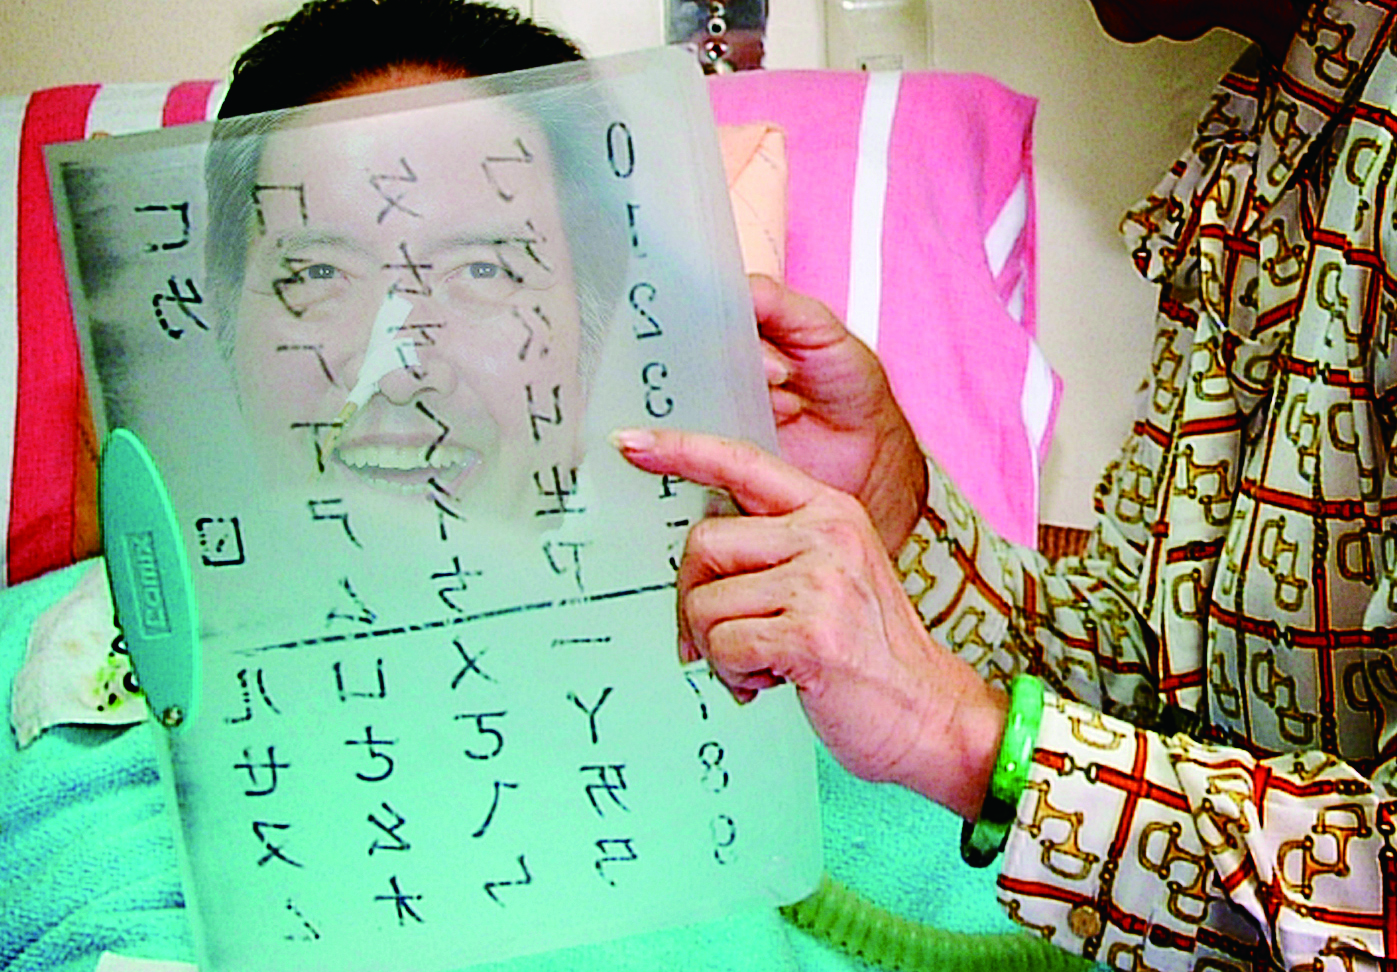 0 1 2 3 4 5 7 8 9
ㄅ ㄉ ㄍ ㄐ ㄓ ㄗ ㄧ ㄚ ㄞ ㄢ
ㄆ ㄊ ㄎ ㄑ ㄔ ㄘ ㄨ ㄛ ㄟ ㄣ
ㄇ ㄋ ㄏ ㄒ ㄕ ㄙ ㄩ ㄜ ㄠ ㄤ
ㄈ ㄌ ㄖ ㄦ ㄝ ㄡ ㄥ